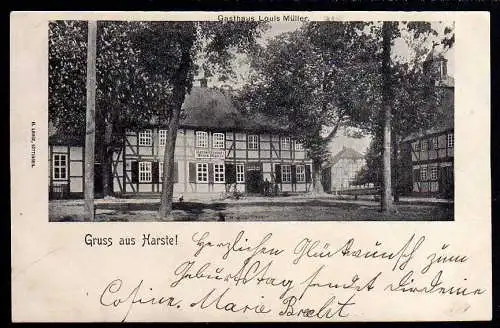 Gasthaus Louis Müller.
Gruss aus Harste!
Herzlichen Glückwunsch zum
Geburtstag sendet Dir deine
Cosine. Marie Brecht